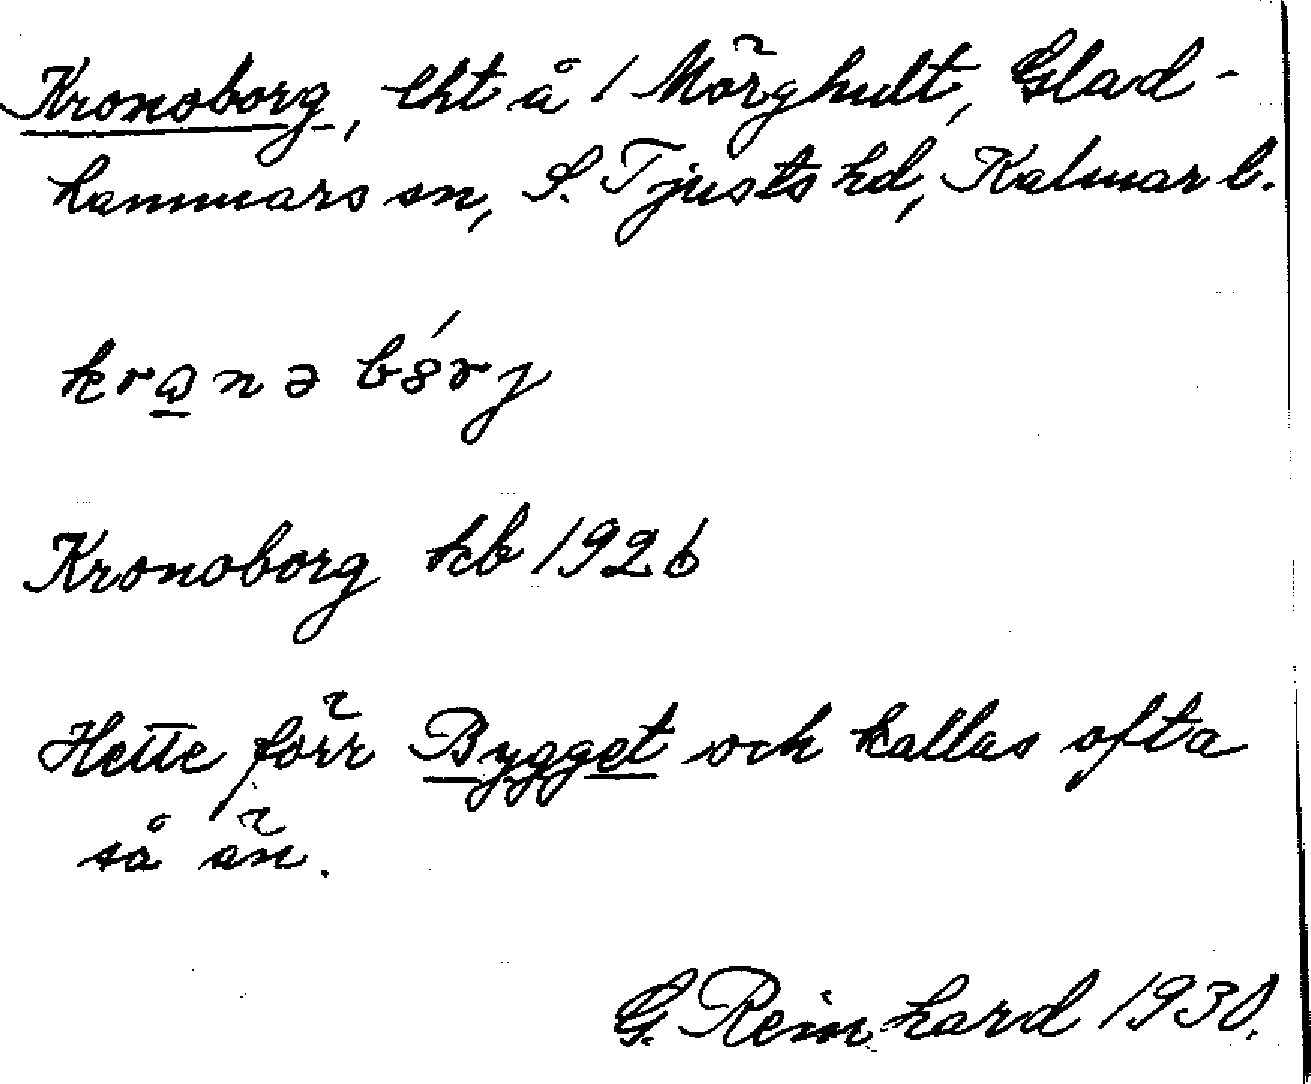 Kronoborg, lht å 1 Mörghult, Glad-
hammars sn, S. Tjusts hd, Kalmar l.
krɷnə bȣ́rj
Kronoborg kb 1926
Hette förr Bygget och kallas ofta
så än.
G. Reinhard 1930.